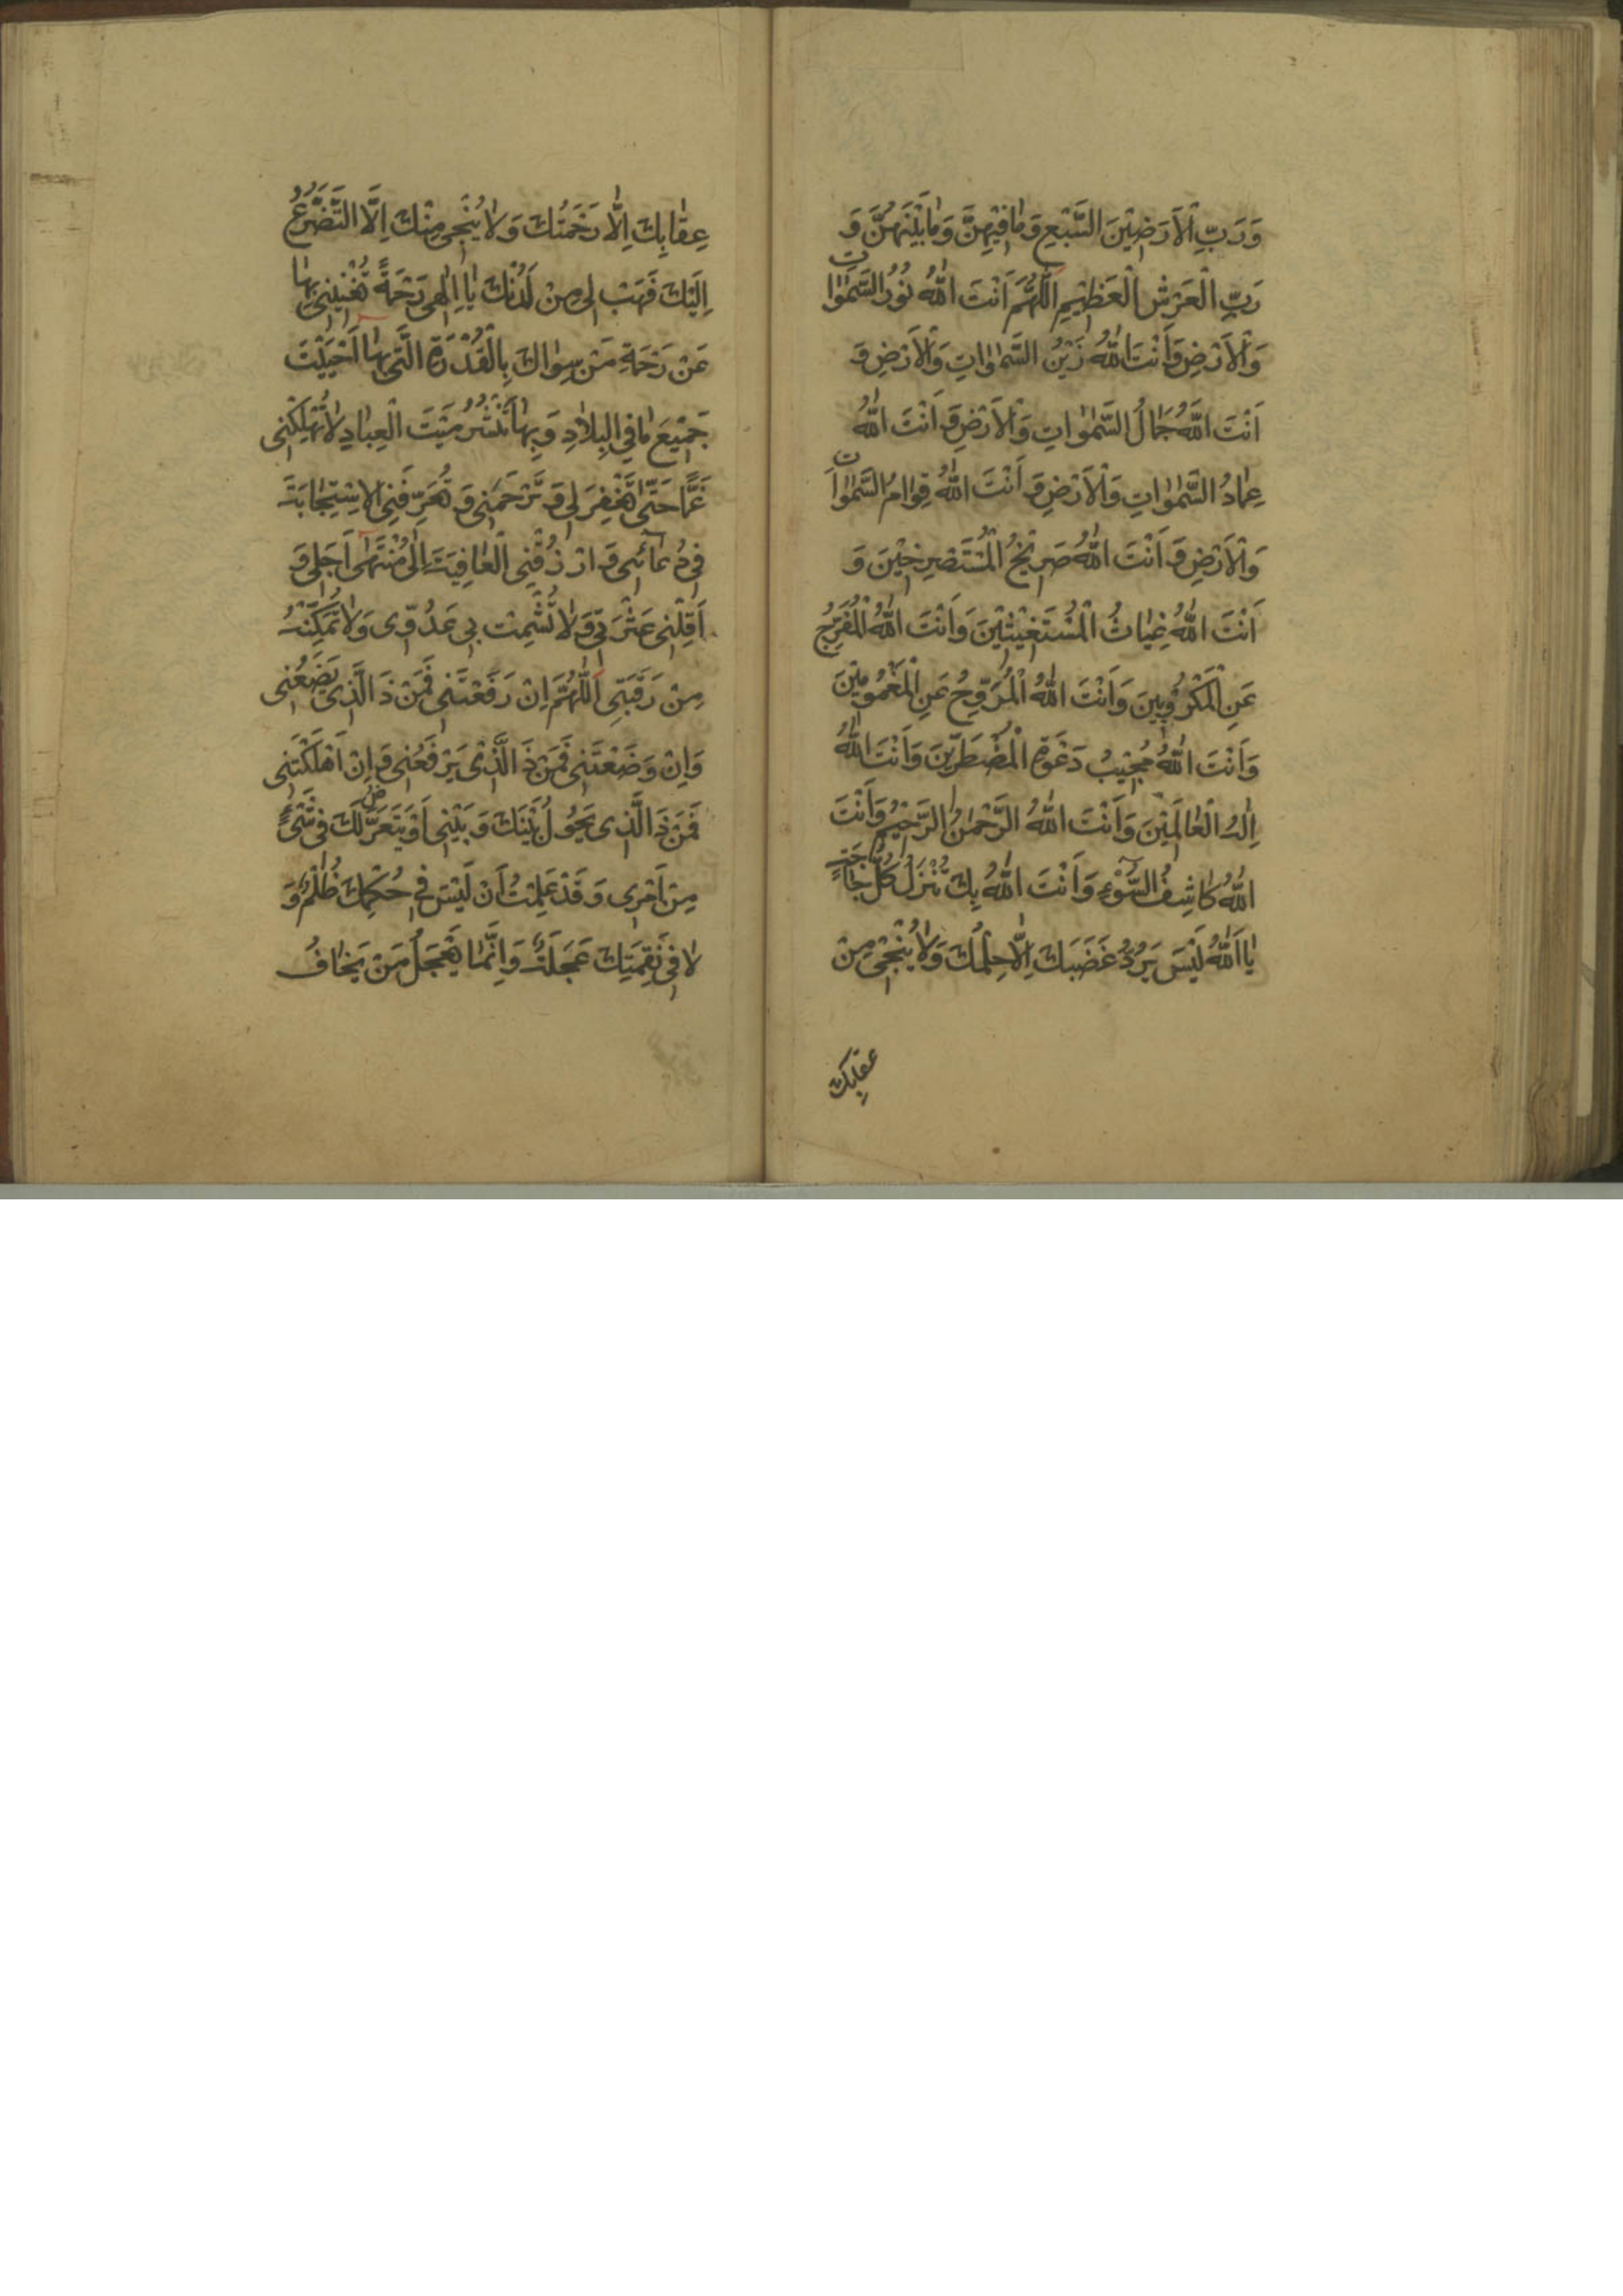 وَرَبِّ الْاَرَضِيْنَ السَّبْعِ وَمٰا فِيْهِنَّ وَمٰا بَيْنَهُنَّ وَ
رَبِّ الْعَرْشِ الْعَظِيْمِ اَللّٰهُمَّ اَنْتَ اللّٰهُ نُوْرُ السَّمٰوٰاتِ
وَالْاَرْضِ وَاَنْتَ اللّٰهُ زَيْنُ السَّمٰوٰاتِ وَالْاَرْضِ وَ
اَنْتَ اللّٰهُ جَمٰالُ السَّمٰوٰاتِ وَالْاَرْضِ وَ اَنْتَ اللّٰهُ
عِمٰادُ السَّمٰوٰاتِ وَالْاَرْضِ وَ اَنْتَ اللّٰهُ قِوٰامُ السَّمٰوٰاتِ
وَالْاَرْضِ وَ اَنْتَ اللّٰهُ صَرِيْخُ الْمُسْتَصْرِخِيْنَ وَ
اَنْتَ اللّٰهُ غِيٰاثُ الْمُسْتَغِيْثِيْنَ وَاَنْتَ اللّٰهُ الْمُفَرِّجُ
عَنِ الْمَكْرُوْبِيْنَ وَاَنْتَ اللّٰهُ الْمُرَوِّحُ عَنِ الْمَغْمُوْمِيْنَ
وَاَنْتَ اللّٰهُ مُجِيْبُ دَعْوَةِ الْمُضْطَرِّيْنَ وَاَنْتَ اللّٰهُ
اِلٰهُ الْعٰالَمِيْنَ وَاَنْتَ اللّٰهُ الرَّحْمٰنُ الرَّحِيْمُ وَاَنْتَ
اللّٰهُ كٰاشِفُ السُّوْٓءِ وَاَنْتَ اللّٰهُ بِكَ تُنْزَلُ كُلُّ حٰاجَةٍ
يٰا اَللّٰهُ لَيْسَ يَرُدُّ غَضَبَكَ اِلّٰا حِلْمُكَ وَلٰا يُنْجِيْ مِنْ
عقابك
عِقٰابِكَ اِلّٰا رَحْمَتُكَ وَلٰا يُنْجِيْ مِنْكَ اِلَّا التَّضَرُّعُ
اِلَيْكَ فَهَبْ لِيْ مِنْ لَدُنْكَ يٰا اِلٰهِيْ رَحْمَةً تُغْنِيْنِيْ بِهٰا
عَنْ رَحْمَةِ مَنْ سِوٰاكَ بِالْقُدْرَةِ الَّتِيْ بِهٰا اَحْيَيْتَ
جَمِيْعَ مٰا فِي الْبِلٰادِ وَ بِهٰا تَنْشُرُ مَيْتَ الْعِبٰادِ لٰا تُهْلِكْنِيْ
غَمًّا حَتّٰى تَغْفِرَ لِيْ وَ تَرْحَمَنِيْ وَ تُعَرِّفَنِي الْاِسْتِجٰابَةَ
فِيْ دُعٰٓائِيْ وَ ارْزُقْنِي الْعٰافِيَةَ اِلٰى مُنْتَهٰى اَجَلِيْ وَ
اَقِلْنِيْ عَثْرَتِيْ وَ لٰا تُشْمِتْ بِيْ عَدُوِّيْ وَلٰا تُمَكِّنْهُ
مِنْ رَقَبَتِيْ اَللّٰهُمَّ اِنْ رَفَعْتَنِيْ فَمَنْ ذَ الَّذِيْ يَضَعُنِيْ
وَاِنْ وَضَعْتَنِيْ فَمَنْ ذَ الَّذِيْ يَرْفَعُنِيْ وَ اِنْ اَهْلَكْتَنِيْ
فَمَنْ ذَ الَّذِيْ يَحُوْلُ بَيْنَكَ وَ بَيْنِيْ اَوْ يَتَعَرَّضُ لَكَ فِيْ شَيْءٍ
مِنْ اَمْرِيْ وَ قَدْ عَلِمْتُ اَنْ لَيْسَ فِيْ حُكْمِكَ ظُلْمٌ وَ
لٰا فِيْ نَقِمَتِكَ عَجَلَةٌ وَ اِنَّمٰا يَعْجَلُ مَنْ يَخٰافُ